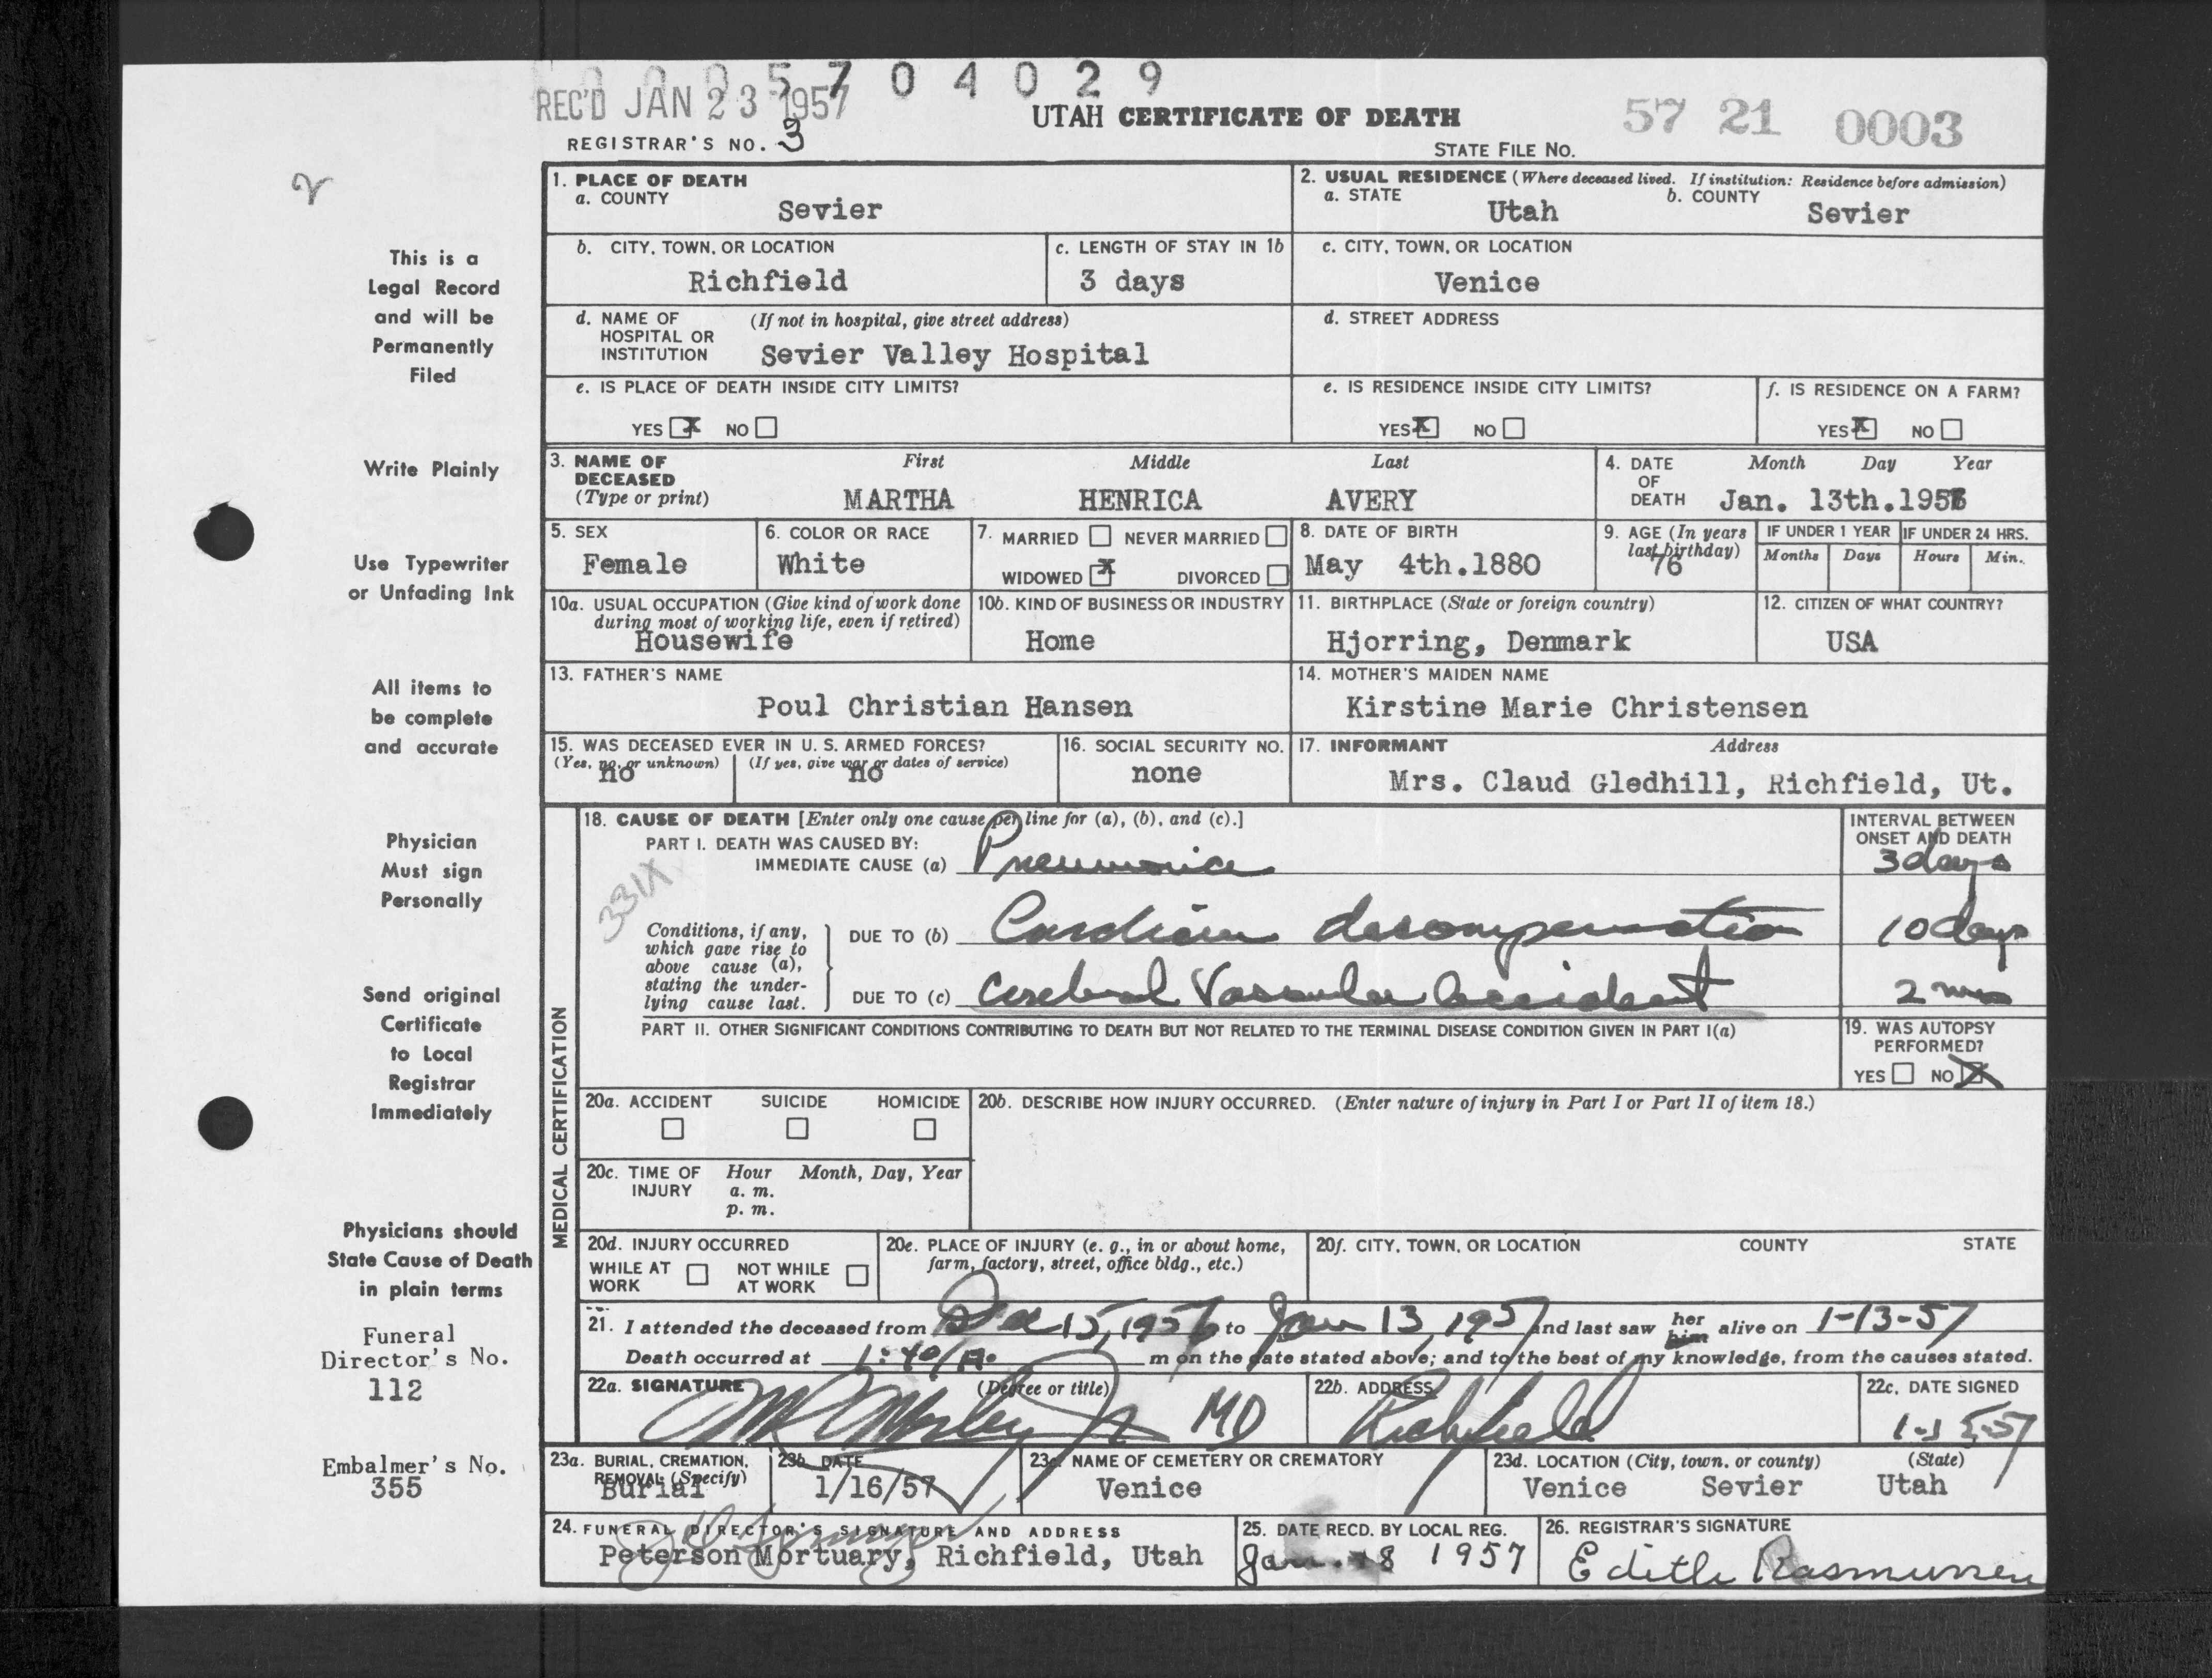 0 0 0 5 7 0 4 0 2 9
REC'D JAN 23 1957
UTAH CERTIFICATE OF DEATH
57 21 0003
REGISTRAR'S NO. 3
STATE FILE NO.
2
This is a
Legal Record
and will be
Permanently
Filed
Write Plainly
Use Typewriter
or Unfading Ink
All items to
be complete
and accurate
Physician
Must sign
Personally
Send original
Certificate
to Local
Registrar
Immediately
Physicians should
State Cause of Death
in plain terms
Funeral
Director's No.
112
Embalmer's No.
355
1. PLACE OF DEATH
a. COUNTY
Sevier
2. USUAL RESIDENCE (Where deceased lived. If institution: Residence before admission)
a. STATE
Utah
b. COUNTY
Sevier
b. CITY, TOWN, OR LOCATION
Richfield
c. LENGTH OF STAY IN 1b
3 days
c. CITY, TOWN, OR LOCATION
Venice
d. NAME OF (If not in hospital, give street address)
HOSPITAL OR
INSTITUTION Sevier Valley Hospital
d. STREET ADDRESS
e. IS PLACE OF DEATH INSIDE CITY LIMITS?
YES X NO
e. IS RESIDENCE INSIDE CITY LIMITS?
YES X NO
f. IS RESIDENCE ON A FARM?
YES X NO
3. NAME OF
DECEASED
(Type or print)
First Middle Last
MARTHA HENRICA AVERY
4. DATE
OF
DEATH
Month Day Year
Jan. 13th.1957
5. SEX
Female
6. COLOR OR RACE
White
7. MARRIED NEVER MARRIED
WIDOWED X DIVORCED
8. DATE OF BIRTH
May 4th.1880
9. AGE (In years
last birthday)
76
IF UNDER 1 YEAR
Months Days
IF UNDER 24 HRS.
Hours Min.
10a. USUAL OCCUPATION (Give kind of work done
during most of working life, even if retired)
Housewife
10b. KIND OF BUSINESS OR INDUSTRY
Home
11. BIRTHPLACE (State or foreign country)
Hjorring, Denmark
12. CITIZEN OF WHAT COUNTRY?
USA
13. FATHER'S NAME
Poul Christian Hansen
14. MOTHER'S MAIDEN NAME
Kirstine Marie Christensen
15. WAS DECEASED EVER IN U. S. ARMED FORCES?
(Yes, no, or unknown) (If yes, give war or dates of service)
no no
16. SOCIAL SECURITY NO.
none
17. INFORMANT Address
Mrs. Claud Gledhill, Richfield, Ut.
MEDICAL CERTIFICATION
18. CAUSE OF DEATH [Enter only one cause per line for (a), (b), and (c).]
PART I. DEATH WAS CAUSED BY:
IMMEDIATE CAUSE (a) Pneumonia
INTERVAL BETWEEN
ONSET AND DEATH
3 days
331X
Conditions, if any,
which gave rise to
above cause (a),
stating the under-
lying cause last.
DUE TO (b) Cardiac decompensation
10 days
DUE TO (c) Cerebral Vascular Accident
2 mos
PART II. OTHER SIGNIFICANT CONDITIONS CONTRIBUTING TO DEATH BUT NOT RELATED TO THE TERMINAL DISEASE CONDITION GIVEN IN PART I(a)
19. WAS AUTOPSY
PERFORMED?
YES NO X
20a. ACCIDENT SUICIDE HOMICIDE
20b. DESCRIBE HOW INJURY OCCURRED. (Enter nature of injury in Part I or Part II of item 18.)
20c. TIME OF Hour Month, Day, Year
INJURY a. m.
p. m.
20d. INJURY OCCURRED
WHILE AT NOT WHILE
WORK AT WORK
20e. PLACE OF INJURY (e. g., in or about home,
farm, factory, street, office bldg., etc.)
20f. CITY, TOWN, OR LOCATION COUNTY STATE
21. I attended the deceased from Dec 15, 1956 to Jan 13, 1957 and last saw her him alive on 1-13-57
Death occurred at 1:40 A. m on the date stated above; and to the best of my knowledge, from the causes stated.
22a. SIGNATURE (Degree or title)
MD
22b. ADDRESS
Richfield
22c. DATE SIGNED
1-15-57
23a. BURIAL, CREMATION,
REMOVAL (Specify)
Burial
23b. DATE
1/16/57
23c. NAME OF CEMETERY OR CREMATORY
Venice
23d. LOCATION (City, town, or county) (State)
Venice Sevier Utah
24. FUNERAL DIRECTOR'S SIGNATURE AND ADDRESS
Peterson Mortuary, Richfield, Utah
25. DATE RECD. BY LOCAL REG.
Jan. 18 1957
26. REGISTRAR'S SIGNATURE
Edith Rasmussen